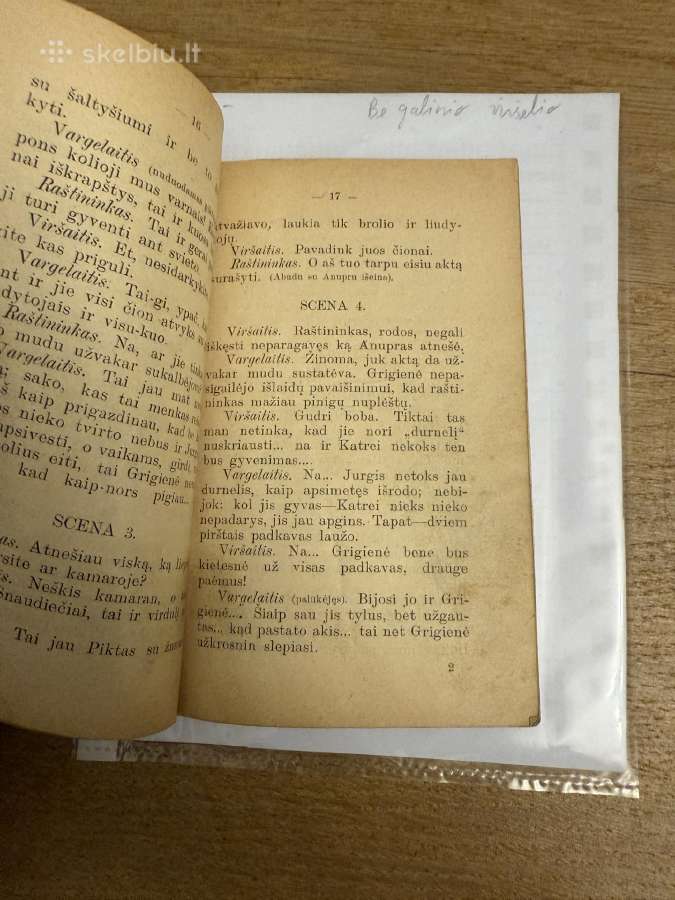 skelbiu.lt
Be galinio viršelio
— 16 —
su šaltyšiumi ir be to
kyti.
Vargelaitis (nuduodamas
pons kolioji mus varnais!
nai iškrapštys, tai ir kuosos
Raštininkas. Tai ir gerai
ji turi gyventi ant svieto.
Viršaitis. Et, nesidarkykit
kite kas priguli.
Vargelaitis. Tai-gi, ypač,
nt ir jie visi čion atvyks su
dytojais ir visu-kuo.
Raštininkas. Na, ar jie
o mudu užvakar sukalbėjome
Vargelaitis. Tai jau mat
a; sako, kas tai menkas
š kaip prigazdinau, kad
os nieko tvirto nebus ir
apsivesti, o vaikams, girdi
olius eiti, tai Grigienė
kad kaip-nors pigiau...
SCENA 3.
as. Atnešiau viską, ką liep
rsite ar kamaroje?
is. Neškis kamaran, o
šnaudiečiai, tai ir virdulį
Tai jau Piktas su
— 17 —
atvažiavo, laukia tik brolio ir liudy-
tojų.
Viršaitis. Pavadink juos čionai.
Raštininkas. O aš tuo tarpu eisiu aktą
surašyti. (Abudu su Anupru išeina).
SCENA 4.
Viršaitis. Raštininkas, rodos, negali
iškęsti neparagavęs ką Anupras atnešė.
Vargelaitis. Žinoma, juk aktą da už-
vakar mudu sustatėva. Grigienė nepa-
sigailėjo išlaidų pavaišinimui, kad rašti-
ninkas mažiau pinigų nuplėštų.
Viršaitis. Gudri boba. Tiktai tas
man netinka, kad jie nori „durnelį“
nuskriausti... na ir Katrei nekoks ten
bus gyvenimas....
Vargelaitis. Na... Jurgis netoks jau
durnelis, kaip apsimetęs išrodo; nebi-
jok: kol jis gyvas—Katrei nieks nieko
nepadarys, jis jau apgins. Tapat—dviem
pirštais padkavas laužo.
Viršaitis. Na... Grigienė bene bus
kietesnė už visas padkavas, drauge
paėmus!
Vargelaitis (palukėjęs). Bijosi jo ir Gri-
gienė... Šiaip sau jis tylus, bet užgau-
tas... kąd pastato akis... tai net Grigienė
užkrosnin slepiasi.
2